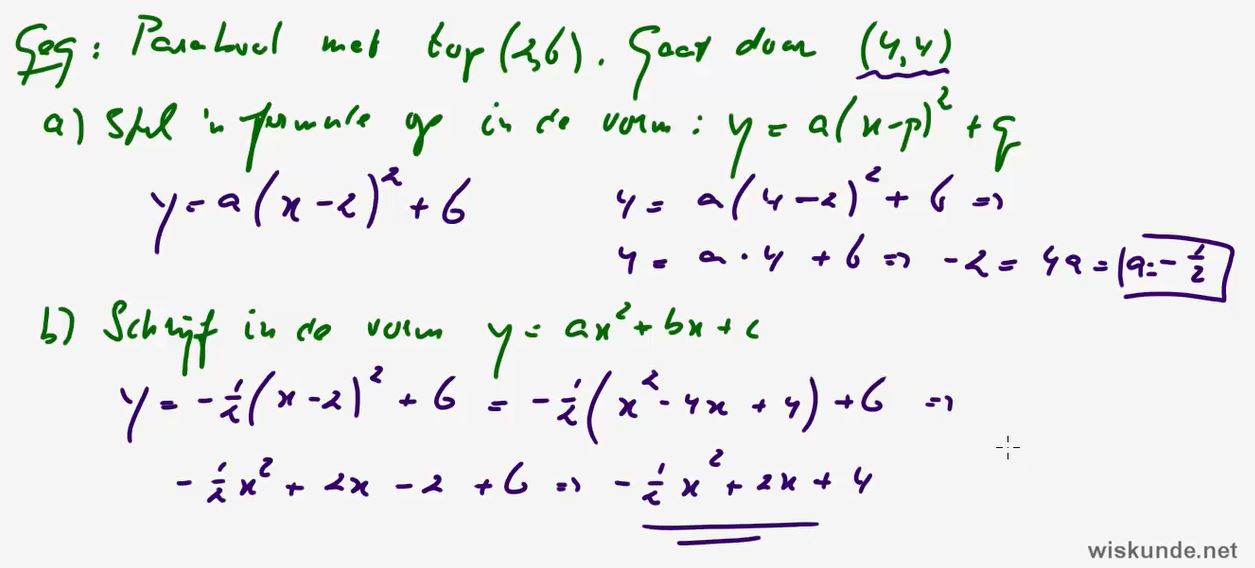 Geg: Parabool met top (2,6). Gaat door (4,4)
a) Stel 'n formule op in de vorm: y = a(x-p)² + q
y = a(x-2)² + 6
4 = a(4-2)² + 6 ⇒
4 = a · 4 + 6 ⇒ -2 = 4a = a = -½
b) Schrijf in de vorm y = ax² + bx + c
y = -½(x-2)² + 6 = -½(x² - 4x + 4) + 6 ⇒
-½x² + 2x - 2 + 6 ⇒ -½x² + 2x + 4
wiskunde.net